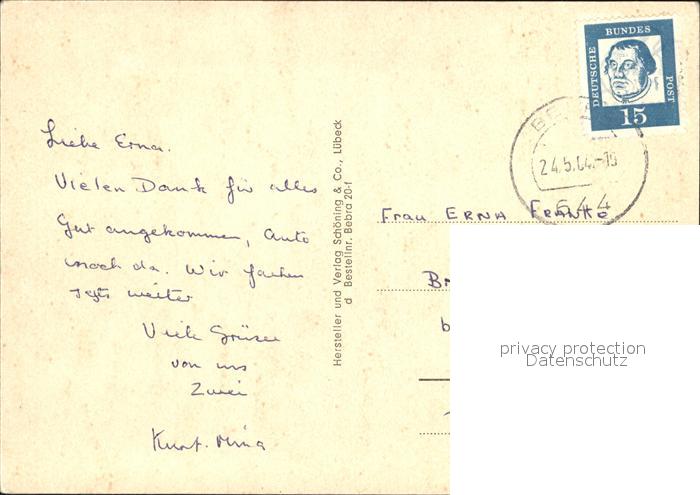 Liebe Erna.
Vielen Dank für alles
Gut angekommen, Auto
noch da. Wir fahren
jetzt weiter
Viele Grüsse
von uns
Zwei
Kurt. Mina
Hersteller und Verlag Schöning & Co., Lübeck
d Bestellnr. Bebra 20-f
DEUTSCHE
BUNDES
POST
15
24.5.64.-18
644
Frau ERNA FRANKE
privacy protection
Datenschutz